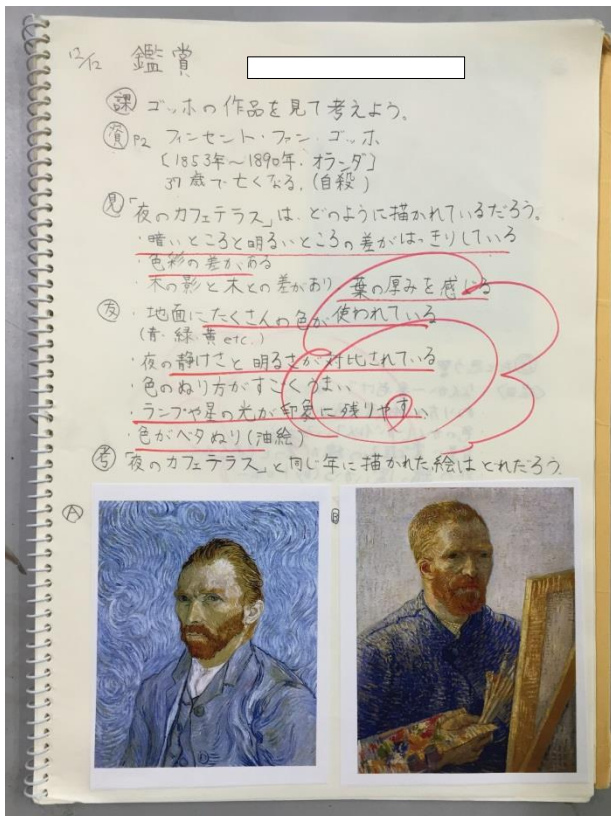 12/12 鑑賞
課 ゴッホの作品を見て考えよう。
資 P2 フィンセント・ファン・ゴッホ
〔1853年〜1890年・オランダ〕
37歳で亡くなる。(自殺)
見「夜のカフェテラス」は、どのように描かれているだろう。
・暗いところと明るいところの差がはっきりしている
・色彩の差がある
・木の影と木との差があり 葉の厚みを感じる
友・地面にたくさんの色が使われている
(青・緑・黄etc.)
・夜の静けさと明るさが対比されている
・色のぬり方がすごくうまい
・ランプや星の光が印象に残りやすい
・色がベタぬり(油絵)
考「夜のカフェテラス」と同じ年に描かれた絵はどれだろう。
A B